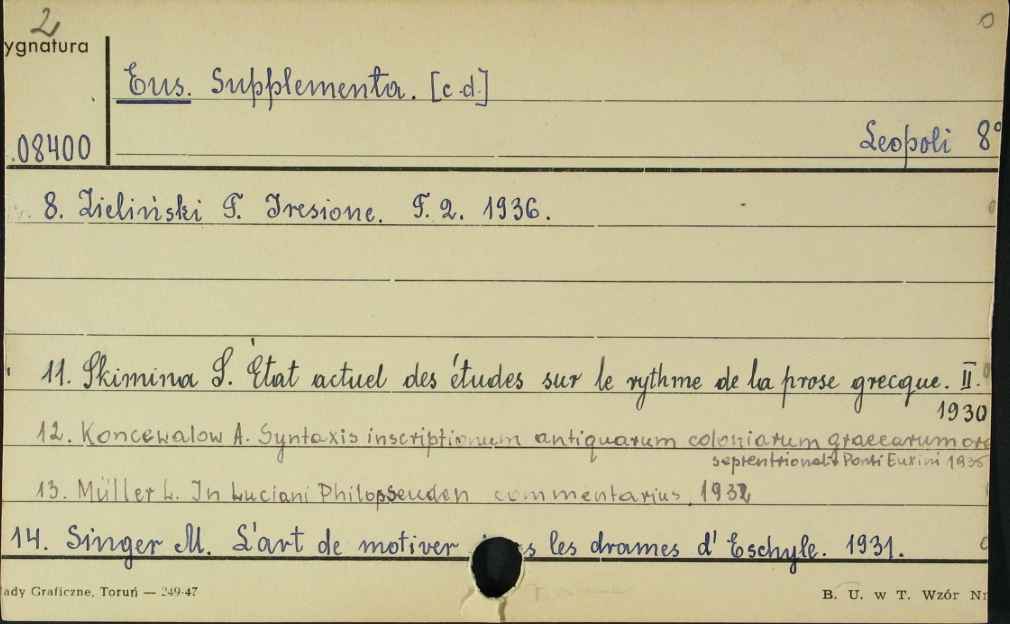 2
ygnatura
Eus. Supplementa. [c.d.]
.08400
Leopoli 8°
8. Zieliński T. Iresione. T. 2. 1936.
11. Skimina S. État actuel des études sur le rythme de la prose grecque. II.
1930
12. Koncewalow A. Syntaxis inscriptionum antiquarum coloniarum graecarum ore
septentrionalis Ponti Euxini 1935
13. Müller L. In Luciani Philopseuden commentarius, 1932
14. Singer M. L'art de motiver les drames d'Eschyle. 1931.
ady Graficzne, Toruń — 249-47
B. U. w T. Wzór Nr